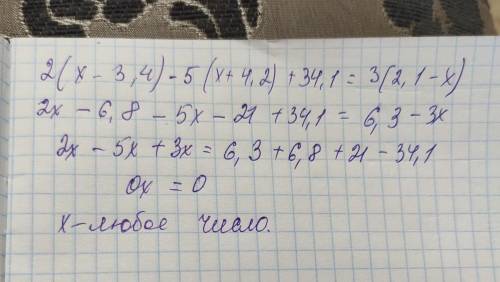 2(x - 3,4) - 5(x + 4,2) + 34,1 = 3(2,1 - x)
2x - 6,8 - 5x - 21 + 34,1 = 6,3 - 3x
2x - 5x + 3x = 6,3 + 6,8 + 21 - 34,1
0x = 0
x - любое число.